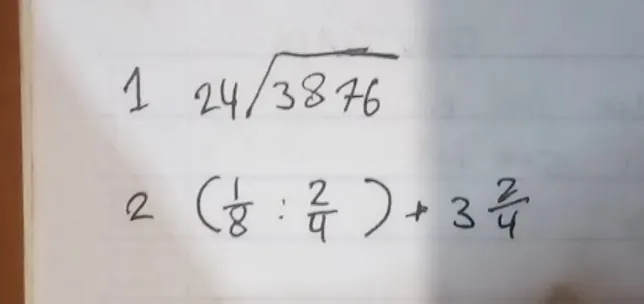 1 24√3876
2 (1/8 : 2/4) + 3 2/4